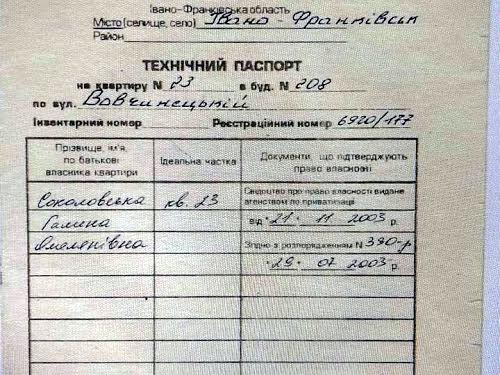 Івано-Франківська область
Місто (селище, село) Івано - Франківськ
Район
ТЕХНІЧНИЙ ПАСПОРТ
на квартиру N 23 в буд. N 208
по вул. Вовчинецькій
Інвентарний номер Реєстраційний номер 6920/177
Прізвище, ім'я, по батькові власника квартири
Ідеальна частка
Документи, що підтверджують право власності
Соколовська кв. 23 Свідоцтво про право власності видане агенством по приватизації
Галина від "21" 11 2003 р.
Омелянівна Згідно з розпорядженням N 390-р
"29" 07 2003 р.